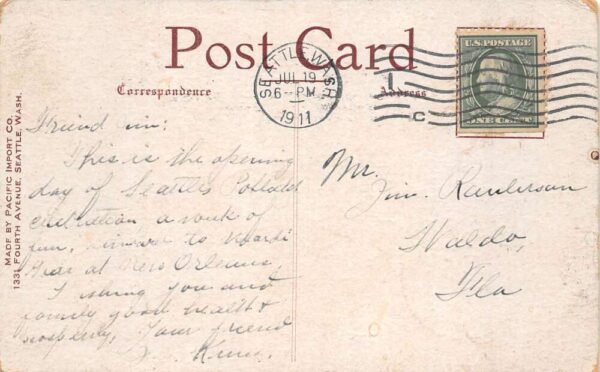 Post Card
Correspondence
Address
SEATTLE, WASH.
JUL 19
6-PM
1911
C
U.S. POSTAGE
ONE CENT
MADE BY PACIFIC IMPORT CO.
1331 FOURTH AVENUE, SEATTLE, WASH.
Friend
This is the opening
day of Seattles Potlatch
a week of
fun, to Mardi
Gras at New Orleans
I wishing you and
family good health &
prosperity, Your friend
Mr.
Jim. Raulerson
Waldo,
Fla